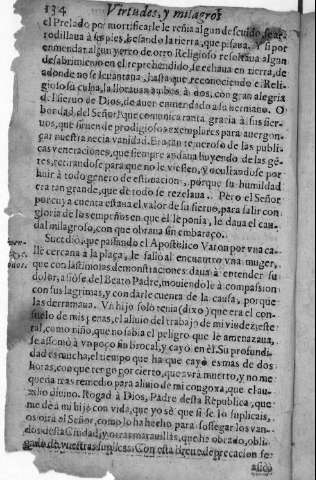 134 Virtudes, y milagros
el Prelado por mortificarle le reñia algun descuido, se ar-
rodillaua a sus pies, besando la tierra, que pisaua. Y si por
enmendar algun yerro de otro Religioso resultaua algun
desabrimiento en el reprehendido, se echaua en tierra, de
adonde no se leuantaua, hasta que reconociendo el Reli-
gioso su culpa, la llorauan ambos à dos, con gran alegria
del Sieruo de Dios, de auer enmendado a su hermano. O
bondad del Señor! que comunica tanta gracia à sus sier-
uos, que siruen de prodigiosos exemplares para auergon-
çar nuestra necia vanidad. Era tan temeroso de las publi-
cas veneraciones, que siempre andaua huyendo de las gē-
tes, retirandose para que no le viessen, y ocultandose por
huir à todo genero de estimacion, porque su humildad
era tan grande, que de todo se rezelaua. Pero el Señor
por cuya cuenta estaua el valor de su sieruo, para salir con
gloria de los empeños en que èl le ponia, le daua el cau-
dal milagroso, con que obraua sin embaraço.
Sucediò, que passando el Apostolico Varon por vna ca-
lle cercana a la plaça, le saliò al encuentro vna muger,
que con lastimosas demonstraciones daua à entender su
dolor, asiòse del Beato Padre, mouiendole à compassion
con sus lagrimas, y con darle cuenta de la causa, porque
las derramaua. Vn hijo solo tenia (dixo) que era el con-
suelo de mis penas, el aliuio del trabajo de mi viudez, este
tal, como niño, que no sabia el peligro que le amenazaua,
se assomò à vn poço sin brocal, y cayò en èl. Su profundi-
dad es mucha, el tiempo que ha que cayò es mas de dos
horas, con que tengo por cierto, que avrà muerto, y no me
queda mas remedio para aliuio de mi congoxa, que el au-
xilio diuino. Rogad à Dios, Padre desta Republica, que
me dè a mi hijo con vida, que yo sè que si se lo suplicais,
os oirà el Señor, como lo ha hecho para sossegar los van-
dos desta Ciudad, y otras marauillas, que ha obrado, obli-
gado de vuestras suplicas. Con esta breue deprecacion se